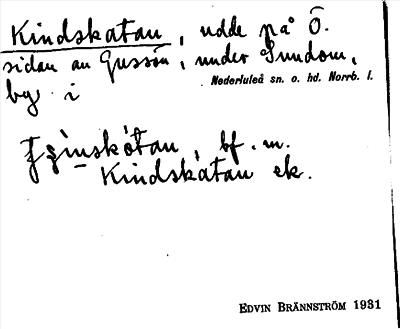 Kindskatan, udde på Ö.
sidan av Gussön, under Sundom,
by i Nederluleå sn. o. hd. Norrb. l.
bf. m.
Kindskatan ek.
EDVIN BRÄNNSTRÖM 1931